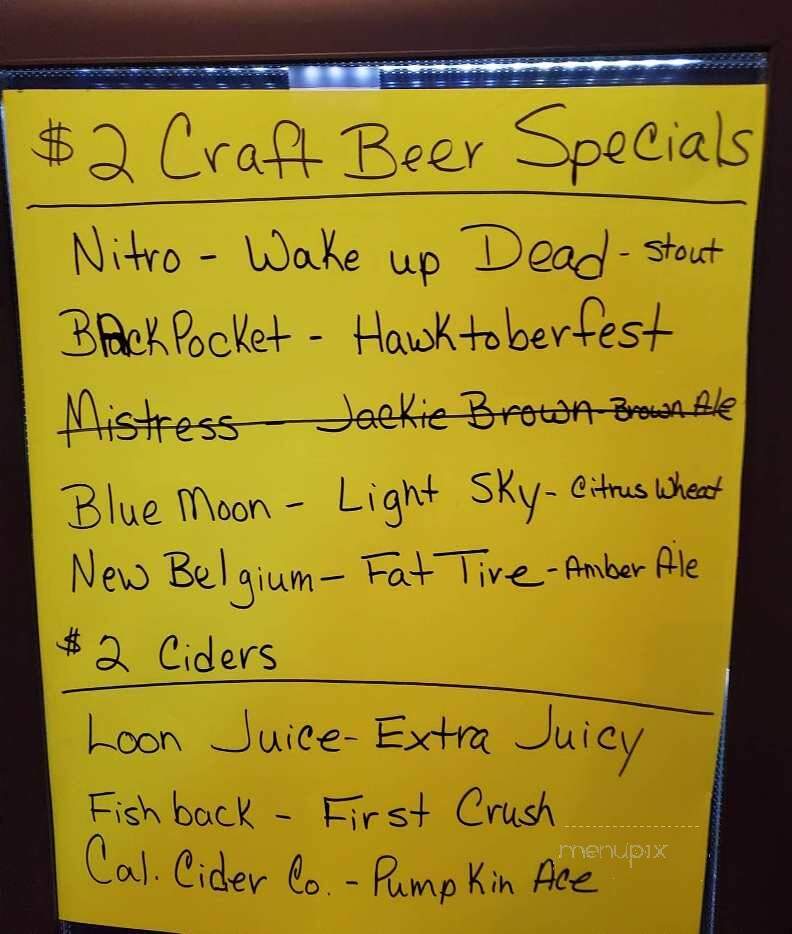 $2 Craft Beer Specials
Nitro - Wake up Dead - stout
BackPocket - Hawktoberfest
Mistress - Jackie Brown - Brown Ale
Blue Moon - Light Sky - Citrus Wheat
New Belgium - Fat Tire - Amber Ale
$2 Ciders
Loon Juice - Extra Juicy
Fishback - First Crush
menupix
Cal. Cider Co. - Pumpkin Ace